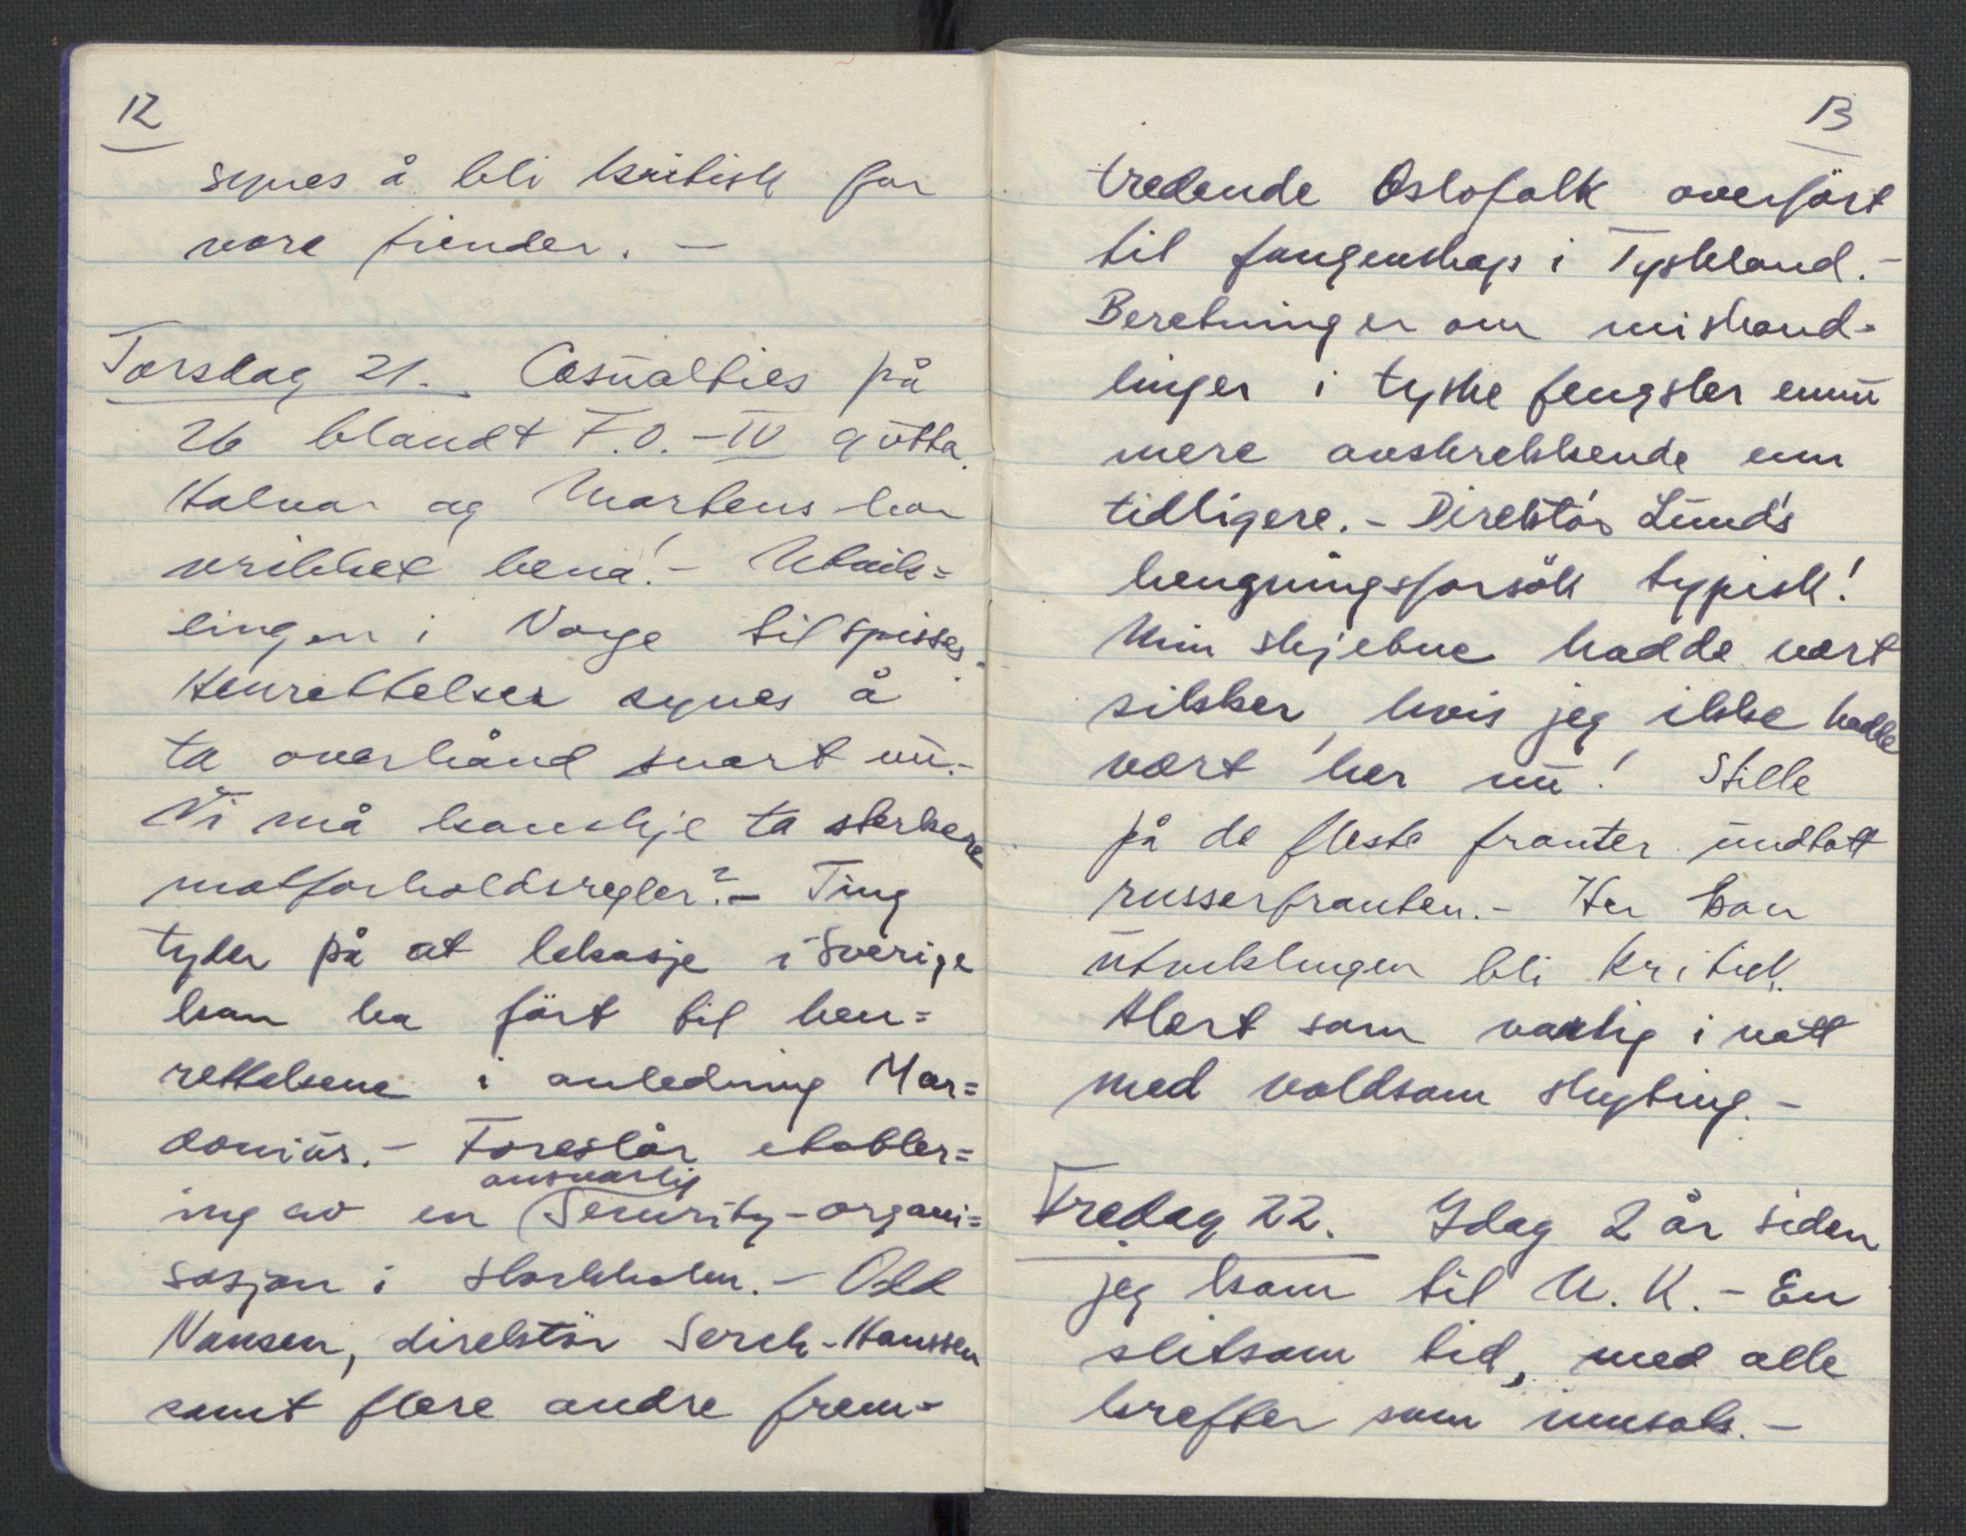 12
synes å bli kritisk for
vore fiender. –
Torsdag 21. Casualties på
26 blandt F.O. – IV gutta.
Halvar og Martens har
vrikket bena! – Utvik=
lingen i Norge tilspisses.
Henrettelser synes å
ta overhånd snart nu. –
Vi må kanskje ta sterkere
motforholdsregler? – Ting
tyder på at lekasje i Sverige
kan ha fört til hen=
rettelsene i anledning Mar=
donius. – Foreslår etabler=
ansvarlig
ing av en Security-organi=
sasjon i Stockholm. – Odd
Nansen, direktör Serck-Hanssen
samt flere andre frem=
13
tredende Oslofolk overfört
til fangenskap i Tyskland. –
Beretninger om mishand=
linger i tyske fengsler ennu
mere avskrekkende enn
tidligere. – Direktör Lund's
hengningsforsök typisk!
Min skjebne hadde vært
sikker, hvis jeg ikke hadde
vært her nu! Stille
på de fleste fronter undtatt
russerfronten. – Her kan
utviklingen bli kritisk.
Alert som vanlig i natt
med voldsom skyting. –
Fredag 22. Idag 2 år siden
jeg kom til U.K. – En
slitsom tid, med alle
krefter som innsats. –